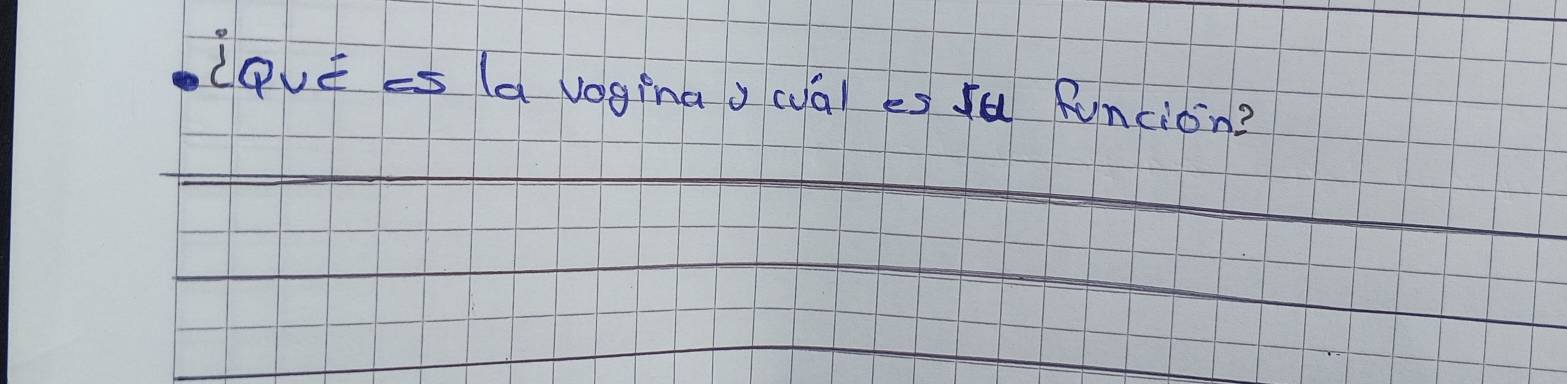 • ¿Qué es la vagina y cuál es su función?